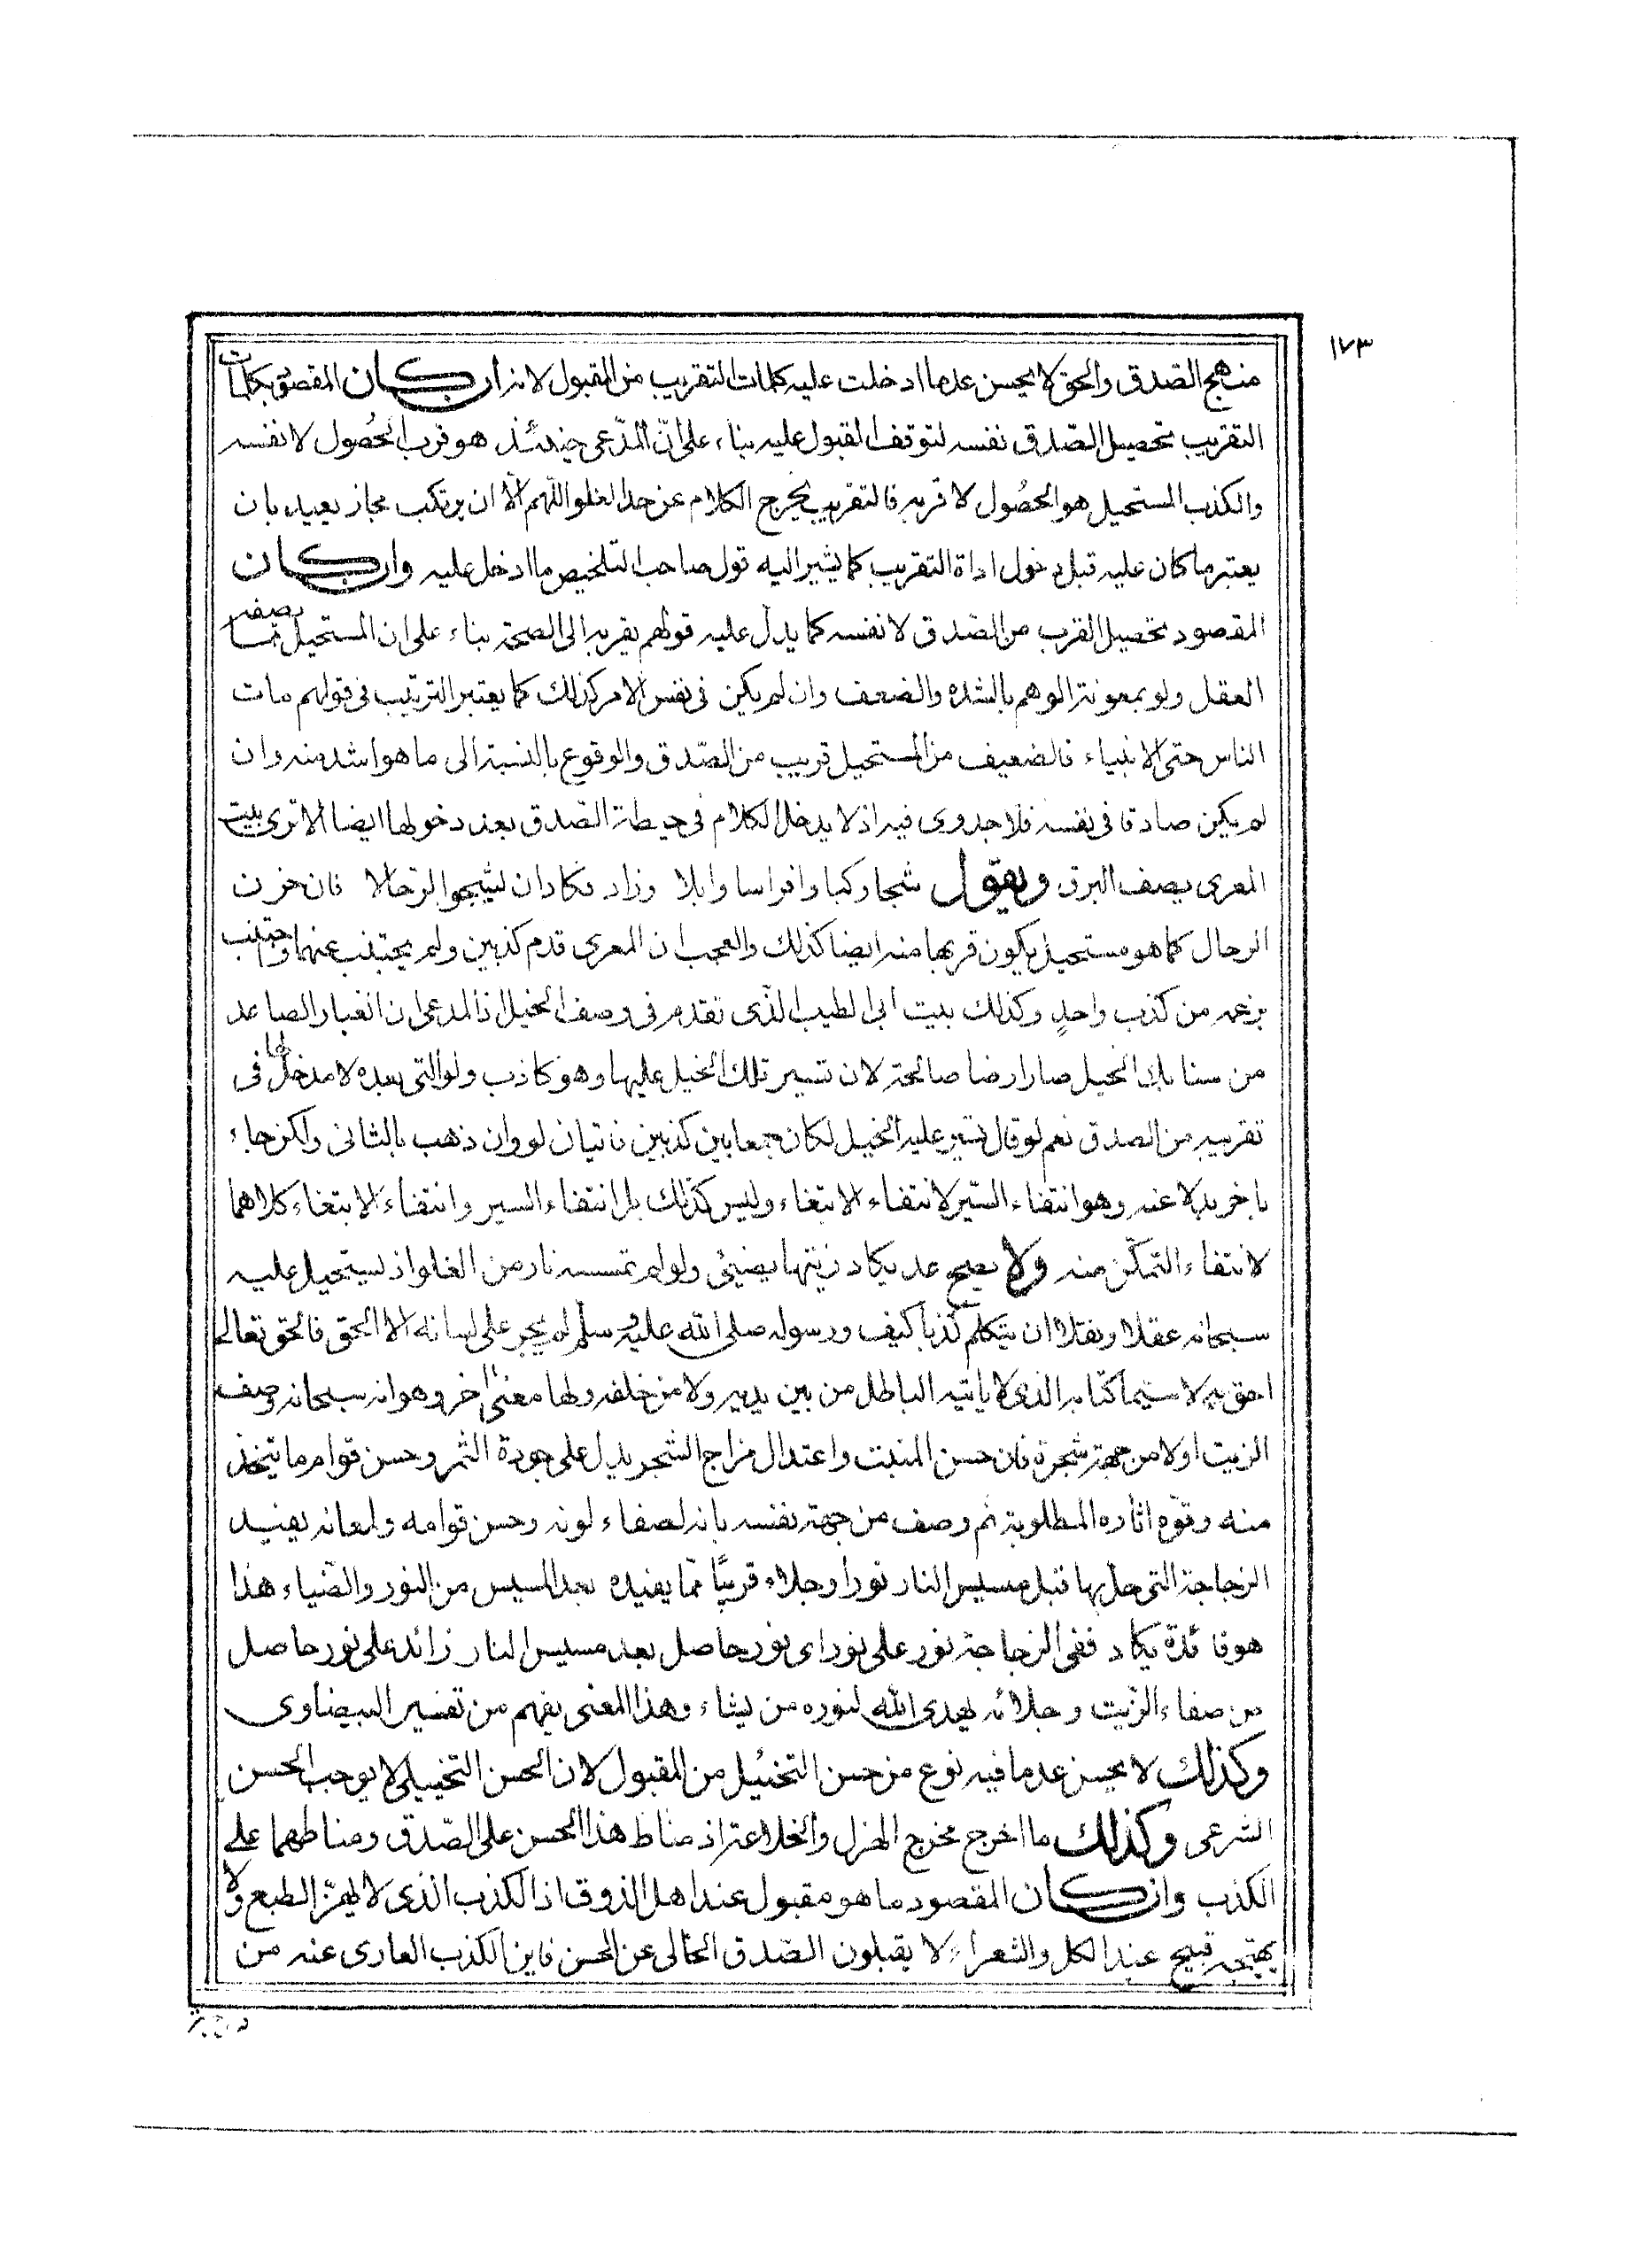 ١٧٣
منهج الصّدق والحق لا يحسن عدما ادخلت عليه كلمات التقريب من المقبول لانه ان كان المقصود بكلمات
التقريب تحصيل الصّدق نفسه لتوقف القبول عليه بناء على انّ المدّعى حينئذ هو قرب الحُصول لا نفسه
والكذب المستحيل هو الحصُول لا قربه فالتقريب يخرج الكلام عن حد الغلو اللّهم الّا ان يرتكب مجاز بعيد بان
يعتبر ما كان عليه قبل دخول اداة التقريب كما يشير اليه قول صاحب التلخيص ما ادخل عليه وان كان
المقصود تحصيل القرب من الصّدق لا نفسه كما يدلّ عليه قولهم يقربه الى الصحة بناء على ان المستحيل مما يصفه
العقل ولو بمعونة الوهم بالشده والضعف وان لم يكن فى نفس الامر كذلك كما يعتبر الترتيب فى قولهم مات
الناس حتى الانبياء فالضعيف من المستحيل قريب من الصّدق والوقوع بالنسبة الى ما هو اشد منه وان
لم يكن صادقا فى نفسه فلا جدوى فيه اذ لا يدخل الكلام فى حيطة الصّدق بعد دخولها ايضا الا ترى بيت
المعرى يصف البرق ويقول شجا ركبا وافراسا وابلا وزاد فكاد ان يشجو الرّحالا فان حزن
الرحال كما هو مستحيل يكون قربها منه ايضا كذلك والعجب ان المعرى قدم كذبين ولم يجتنب عنهما واجتنب
بزعمه من كذب واحدٍ وكذلك بيت ابى الطيب الذّى تقدم فى وصف الخيل اذ المدعى ان الغبار الصاعد
من سنابك الخيل صار ارضا صالحة لان تسير تلك الخيل عليها وهو كاذب ولو التى بعده لا مدخل لها فى
تقريبه من الصدق نعم لو قال تسير عليه الخيل لكان جمعا بين كذبين فاتيان لو وان ذهب بالثانى ولكن جاء
باخر بدلا عنه وهو انتفاء السّير لانتفاء الابتغاء وليس كذلك بل انتفاء السير وانتفاء الابتغاء كلاهما
لانتفاء التمكّن منه ولا يصح عد يكاد زيتها يضيئ ولو لم تمسسه نار من الغلو اذ يستحيل عليه
سبحانه عقلا ونقلا ان يتكلم كذبا كيف ورسوله صلى الله عليه وسلّم لم يجر على لسانه الا الحق فالحق تعالى
احق به لا سيّما كتابه الذى لا ياتيه الباطل من بين يديه ولا من خلفه ولها معنى اخر وهو انه سبحانه وصف
الزيت اولا من جهة شجرة فان حسن المنبت واعتدال مزاج الشجر يدل على جودة الثمر وحسن قوام ما يتخذ
منه وقوّه اثاره المطلوبة ثم وصف من جهة نفسه بانه لصفاء لونه وحسن قوامه ولمعانه يفيد
الزجاجة التى حل بها قبل مسيس النار نورا وجلاء قريبًا ممّا يفيده بعد المسيس من النور والضّياء هذا
هو فائدة يكاد ففى الزجاجة نور على نور اى نور حاصل بعد مسيس النار زائد على نور حاصل
من صفاء الزّيت وجلائه يهدى الله لنوره من يشاء وهذا المعنى يفهم من تفسير البيضاوى
وكذلك لا يحسن عد ما فيه نوع من حسن التخييل من المقبول لان الحسن التخييلى لا يوجب الحسن
الشرعى وكذلك ما اخرج مخرج الهزل والخلاعة اذ مناط هذا الحسن على الصّدق ومناطهما على
الكذب وان كان المقصود ما هو مقبول عند اهل الذوق اذ الكذب الذى لا يهزّ الطبع ولا
يهيّجه قبيح عند الكل والشعراء لا يقبلون الصّدق الخالى عن الحسن فاين الكذب العارى عنه من